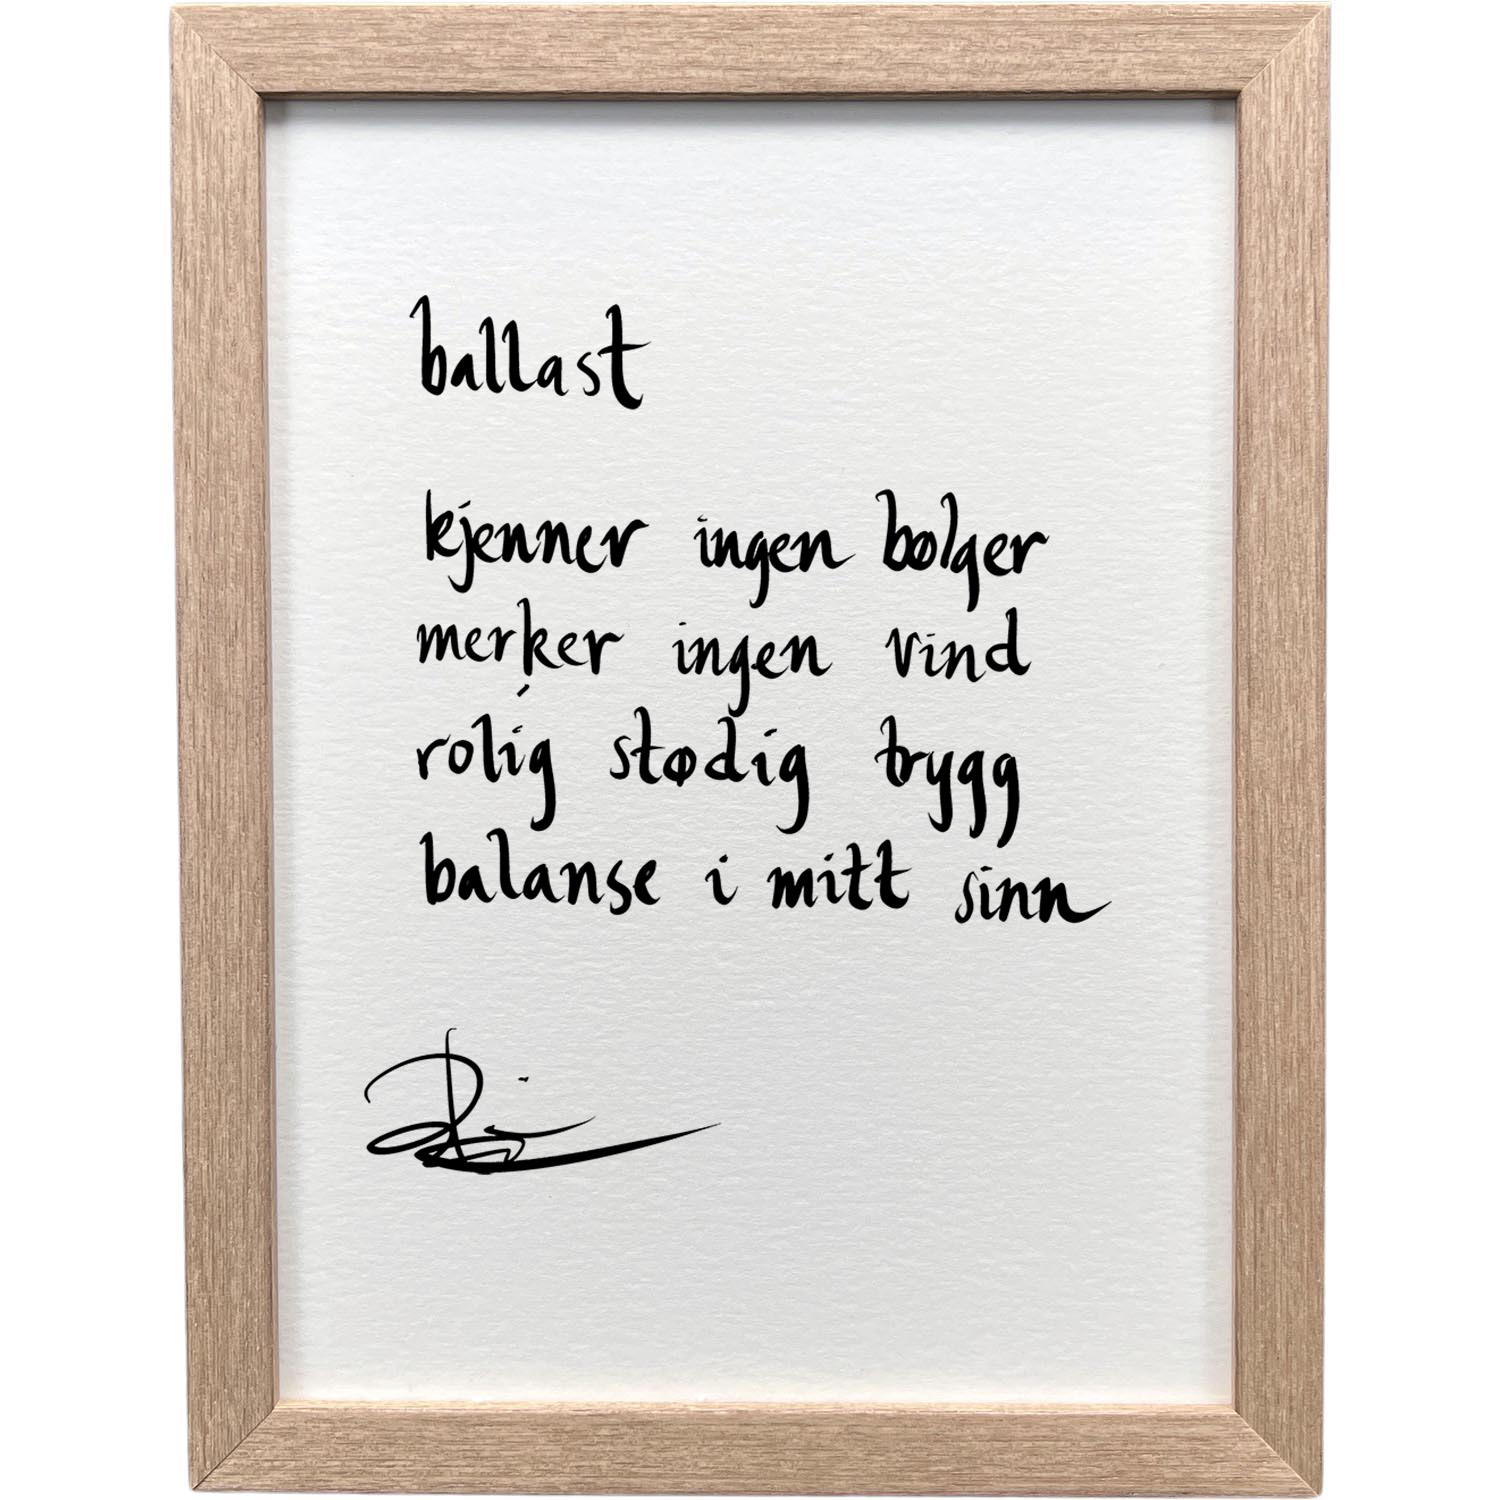 ballast
kjenner ingen bølger
merker ingen vind
rolig stødig trygg
balanse i mitt sinn